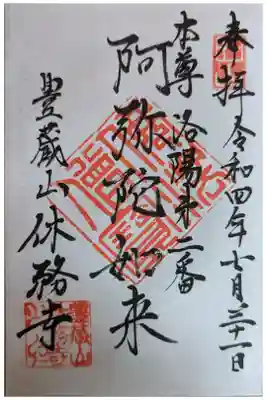 奉拝 令和四年七月三十一日
本尊 洛陽第二番
阿弥陀如来
豊蔵山休務寺